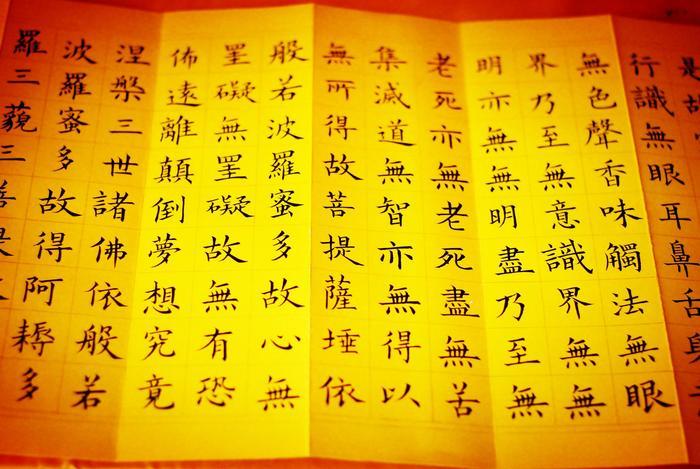 是故
行識無眼耳鼻舌身
無色聲香味觸法無眼
界乃至無意識界無無
明亦無無明盡乃至無
老死亦無老死盡無苦
集滅道無智亦無得以
無所得故菩提薩埵依
般若波羅蜜多故心無
罣礙無罣礙故無有恐
怖遠離顛倒夢想究竟
涅槃三世諸佛依般若
波羅蜜多故得阿耨多
羅三藐三菩